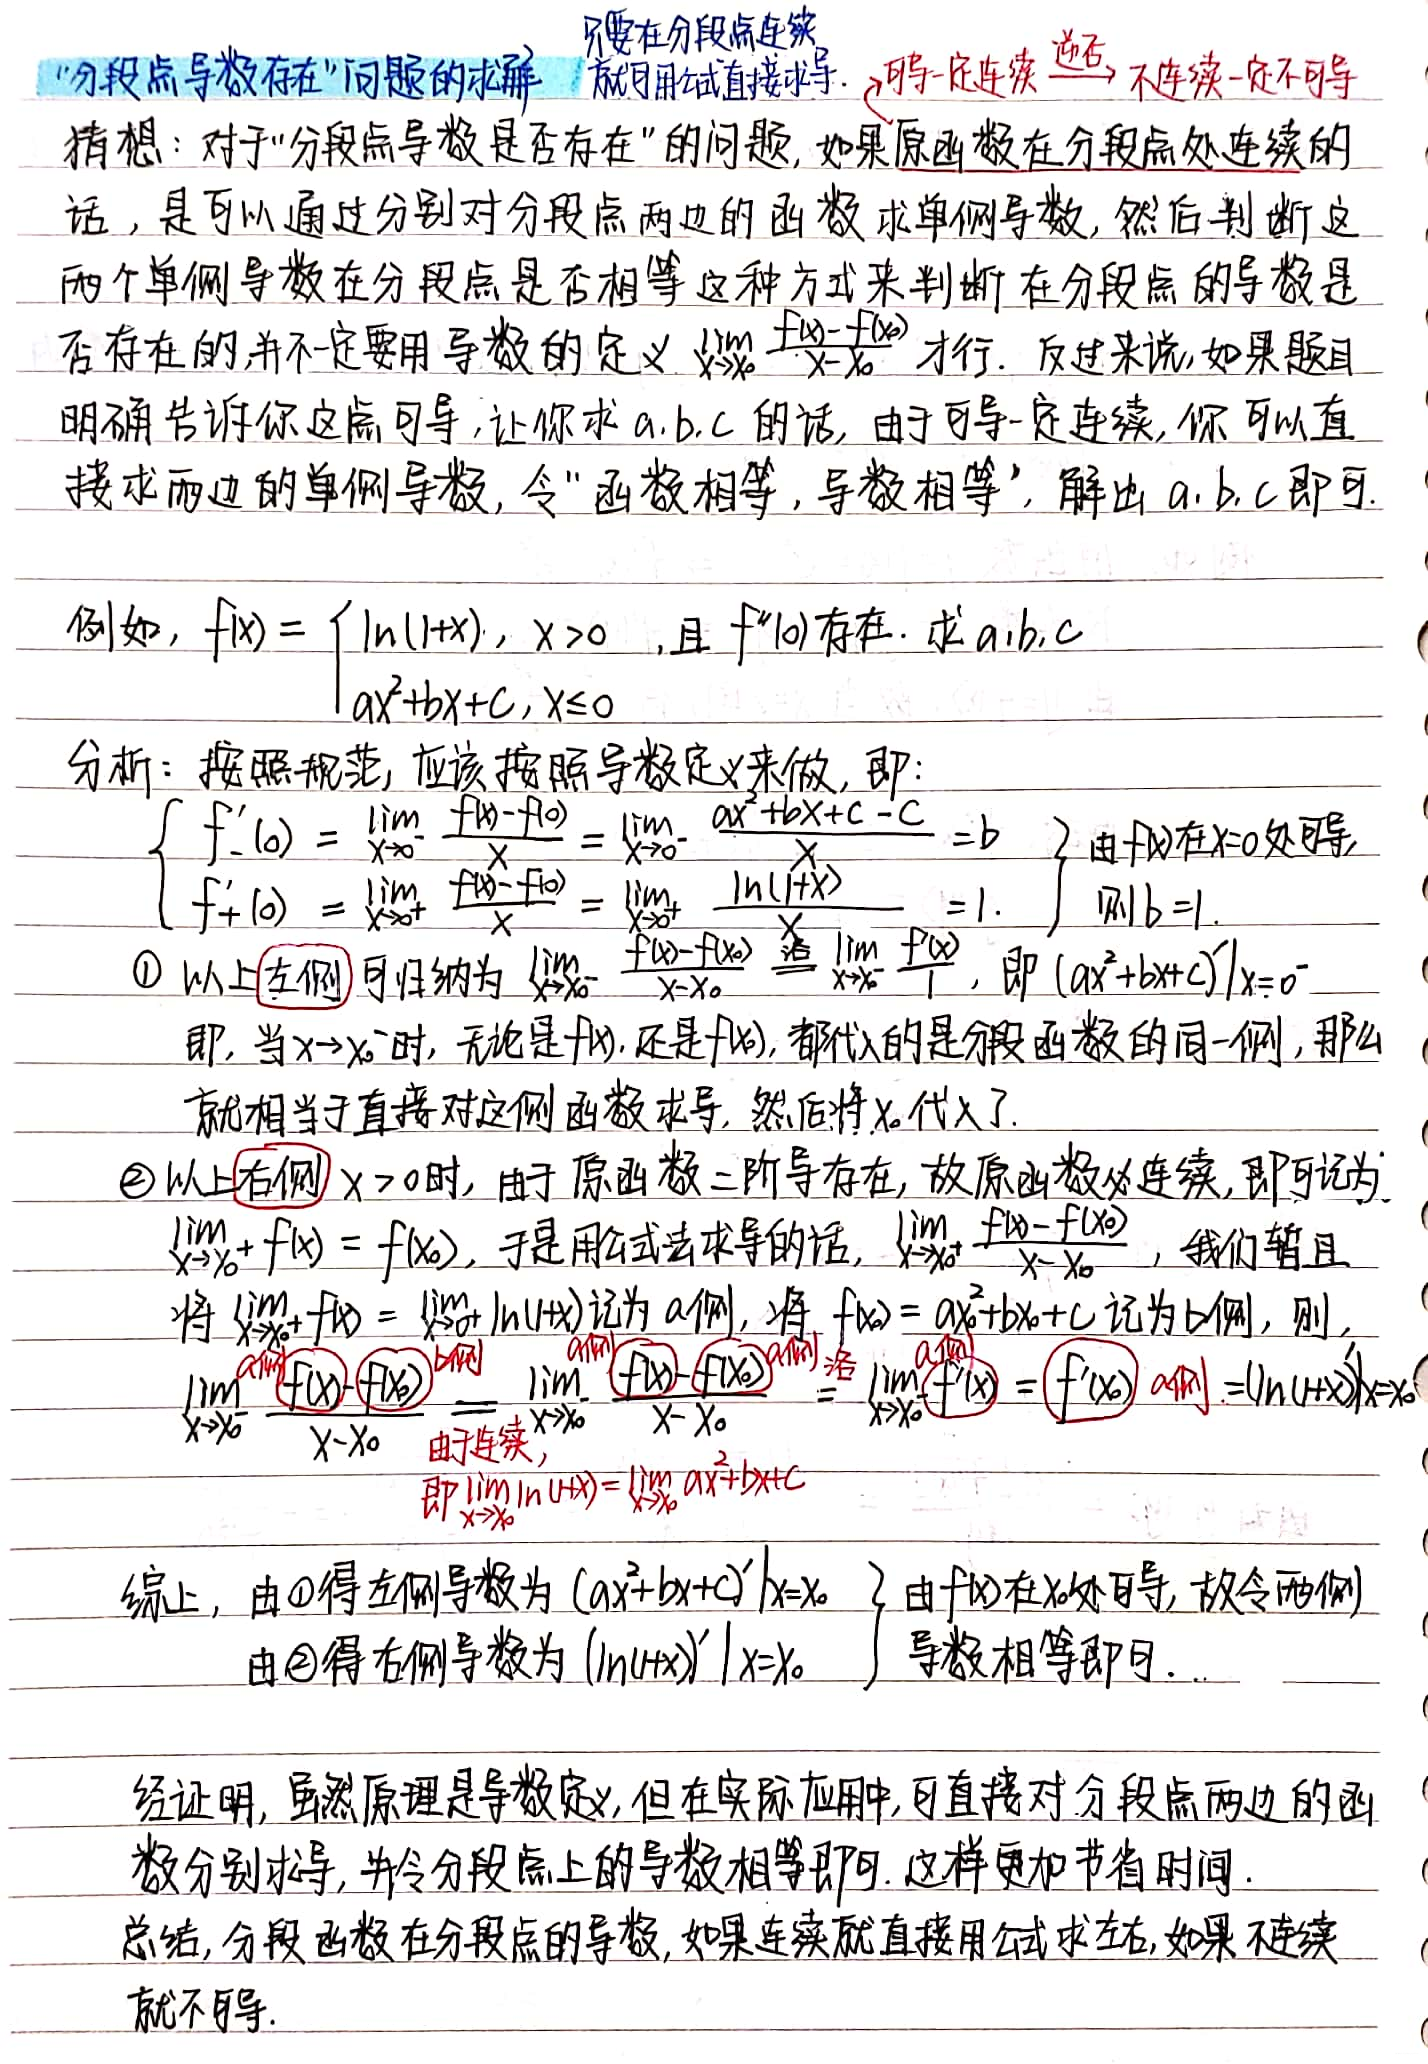 只要在分段点连续
"分段点导数存在"问题的求解 就可用公式直接求导. 可导一定连续 逆否→ 不连续一定不可导
猜想：对于"分段点导数是否存在"的问题,如果原函数在分段点处连续的
话，是可以通过分别对分段点两边的函数求单侧导数,然后判断这
两个单侧导数在分段点是否相等这种方式来判断在分段点的导数是
否存在的,并不一定要用导数的定义 lim x→x₀ (f(x)-f(x₀))/(x-x₀) 才行. 反过来说,如果题目
明确告诉你这点可导,让你求a.b.c的话,由于可导一定连续,你可以直
接求两边的单侧导数,令"函数相等,导数相等",解出a.b.c即可.
例如, f(x)= { ln(1+x), x>0 ,且 f″(0)存在.求a.b.c
ax²+bx+c, x≤0
分析：按照规范,应该按照导数定义来做,即:
{ f′₋(0) = lim x→0⁻ (f(x)-f(0))/x = lim x→0⁻ (ax²+bx+c-c)/x =b } 由f(x)在x=0处可导,
f′₊(0) = lim x→0⁺ (f(x)-f(0))/x = lim x→0⁺ ln(1+x)/x =1. 则b=1.
① 以上左侧可归纳为 lim x→x₀⁻ (f(x)-f(x₀))/(x-x₀) 洛= lim x→x₀⁻ f′(x)/1 , 即 (ax²+bx+c)′|x=0⁻
即,当x→x₀⁻时,无论是f(x),还是f(x₀),都代入的是分段函数的同一侧,那么
就相当于直接对这侧函数求导,然后将x₀代入了.
②以上右侧x>0时,由于原函数二阶导存在,故原函数必连续,即可记为:
lim x→x₀⁺ f(x)=f(x₀), 于是用公式去求导的话, lim x→x₀⁺ (f(x)-f(x₀))/(x-x₀) , 我们暂且
将 lim x→x₀⁺ f(x) = lim x→0⁺ ln(1+x)记为a侧,将 f(x₀)=ax₀²+bx₀+c记为b侧,则,
lim x→x₀⁻ (a侧 f(x)-f(x₀) b侧)/(x-x₀) = lim x→x₀⁻ (a侧 f(x)-f(x₀) a侧)/(x-x₀) 洛= lim x→x₀⁻ a侧 f′(x) = f′(x₀) a侧 =(ln(1+x))′|x=x₀
由于连续,
即 lim x→x₀ ln(1+x)= lim x→x₀ ax²+bx+c
综上, 由①得左侧导数为 (ax²+bx+c)′|x=x₀ } 由f(x)在x₀处可导,故令两侧
由②得右侧导数为 (ln(1+x))′|x=x₀ 导数相等即可.
经证明,虽然原理是导数定义,但在实际应用中,可直接对分段点两边的函
数分别求导,并令分段点上的导数相等即可.这样更加节省时间.
总结,分段函数在分段点的导数,如果连续就直接用公式求左右,如果不连续
就不可导.